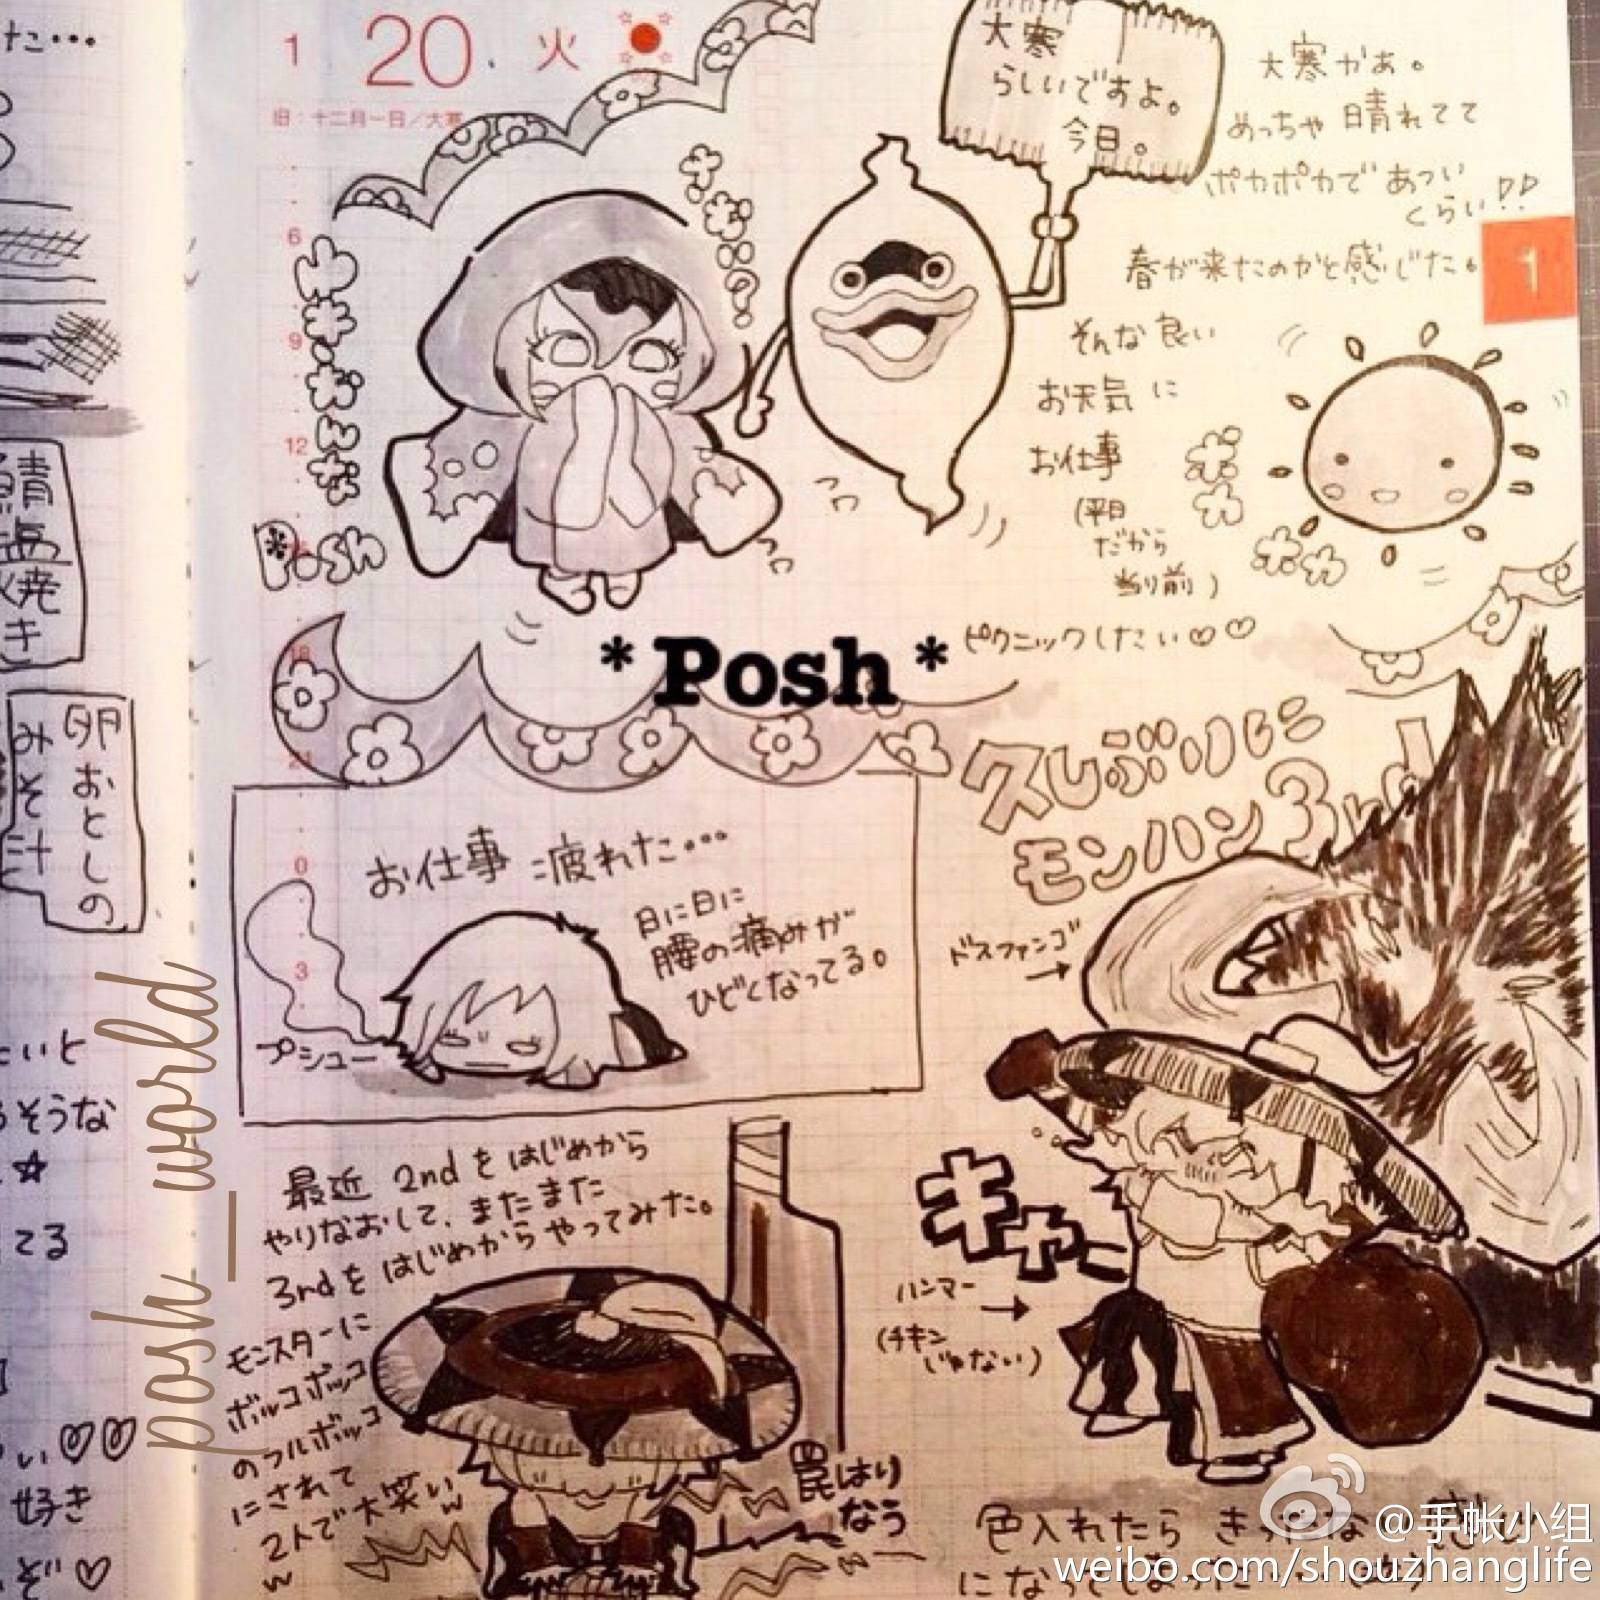 た…
1 20 火
旧：十二月一日／大寒
大寒
らしいですよ。
今日。
大寒かぁ。
めっちゃ 晴れてて
ポカポカで あつい
くらい!!
春が来たのかと感じた。
1
そんな良い
お天気に
お仕事
(平日
だから
当り前)
ピクニックしたい♡♡
ポカ
ポカ
6
9
12
18
21
0
3
P*sh
*Posh*
鯖塩焼き
卵おとしの
みそ汁
お仕事 疲れた…
日に日に
腰の痛みが
ひどくなってる。
プシュー
久しぶりに
モンハン3rd
ドスファンゴ
→
キャー
ハンマー
→
(チキン
じゃない)
最近 2ndを はじめから
やりなおして、またまた
3rdを はじめからやってみた。
モンスターに
ボッコボッコ
のフルボッコ
にされて
2人で大笑いw
w
罠はり
なう
色入れたら
そうな
てる
好き
posh_world
@手帐小组
weibo.com/shouzhanglife